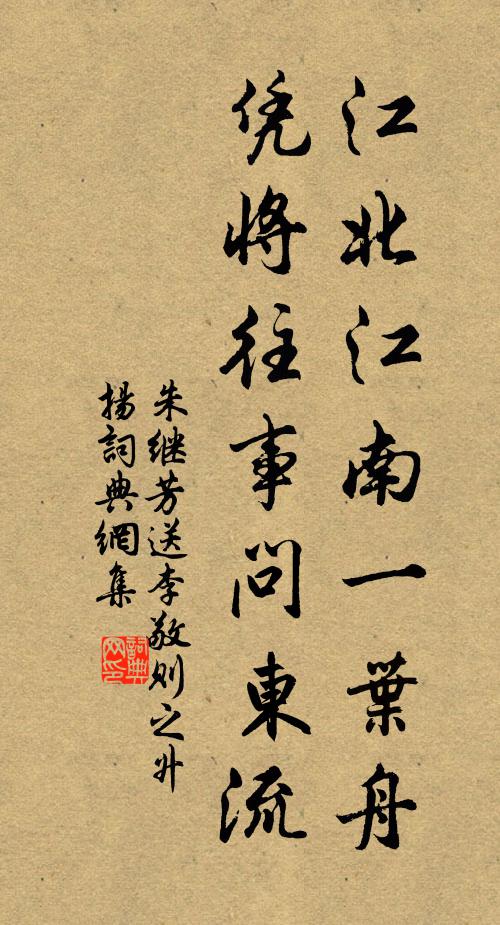 江北江南一葉舟
凭將往事問東流
朱继芳送李敬则之升
揚詞典網集
詞典
网印